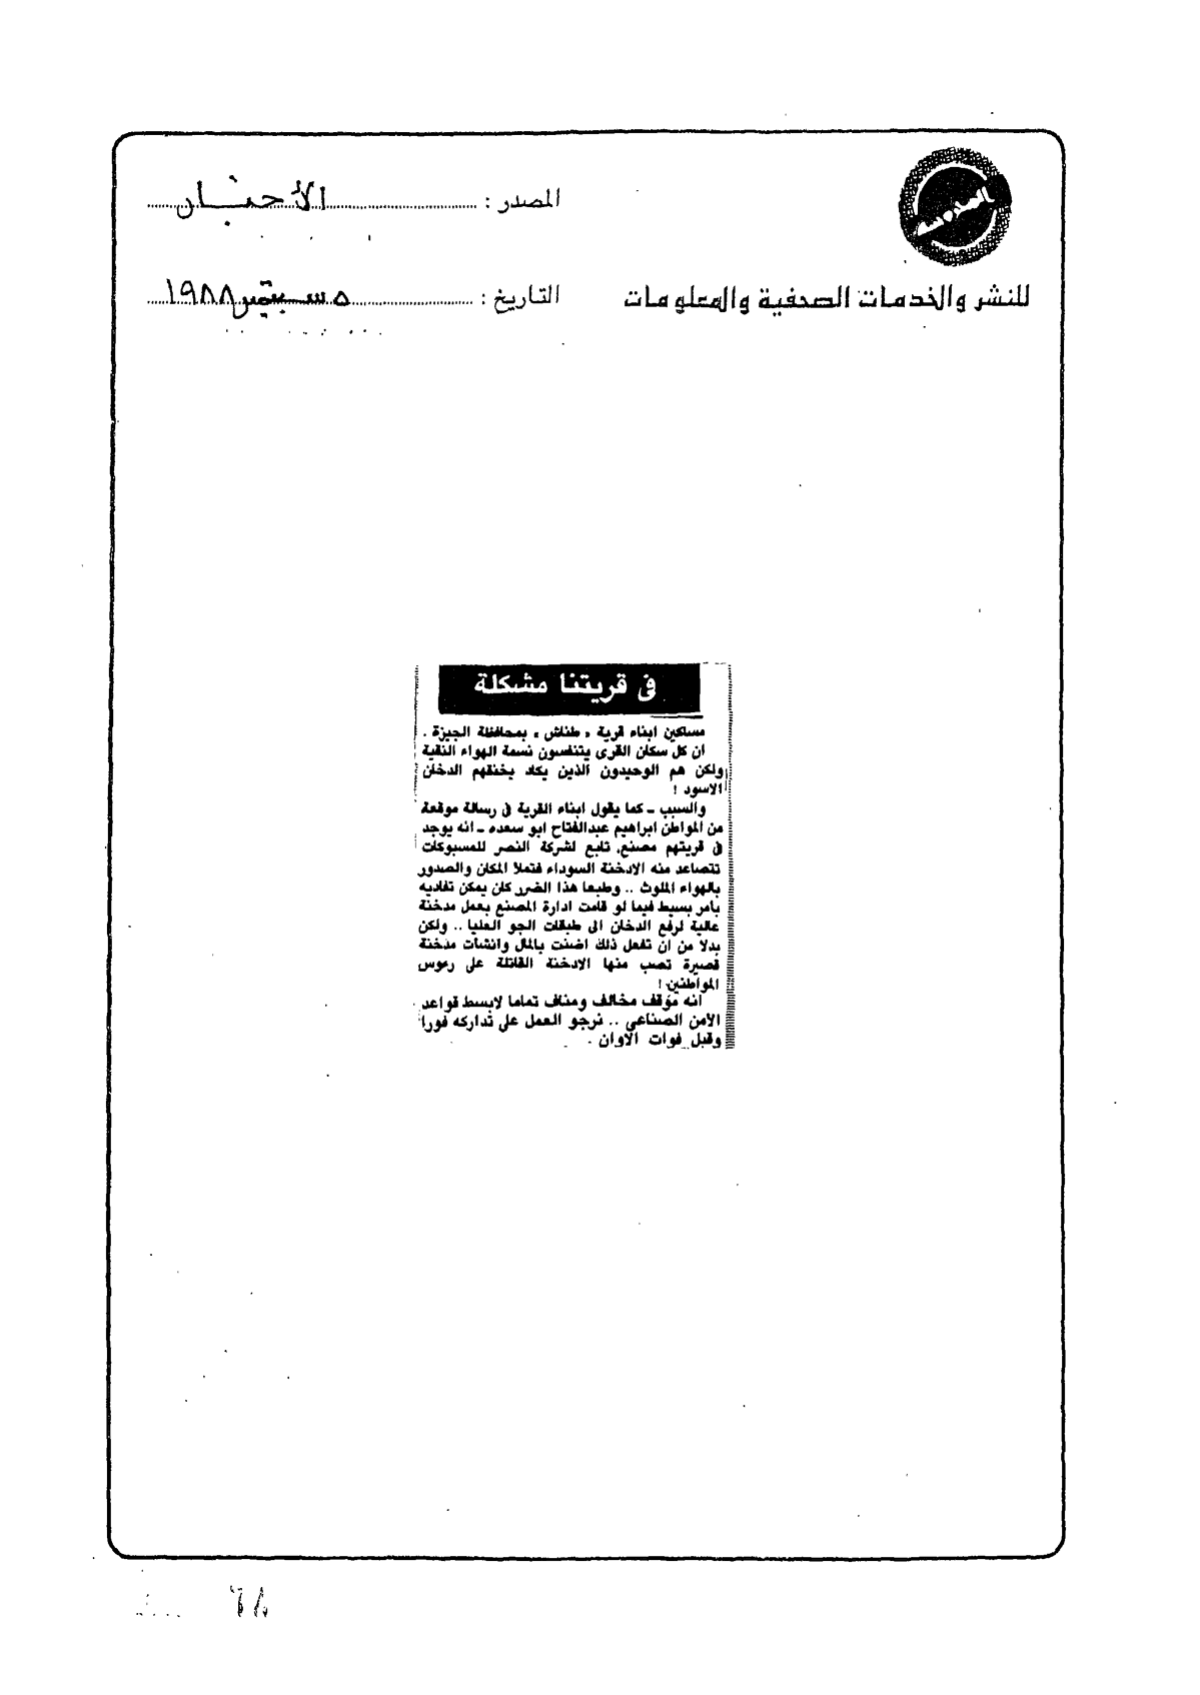 المصدر : الأخبار
للنشر والخدمات الصحفية والمعلومات
التاريخ : ٥ سبتمبر ١٩٨٨
فى قريتنا مشكلة
مساكين ابناء قرية « طناش » بمحافظة الجيزة .
ان كل سكان القرى يتنفسون نسمة الهواء النقية
ولكن هم الوحيدون الذين يكاد يخنقهم الدخان
الاسود !
والسبب ـ كما يقول ابناء القرية فى رسالة موقعة
من المواطن ابراهيم عبدالفتاح ابو سعده ـ انه يوجد
فى قريتهم مصنع تابع لشركة النصر للمسبوكات
تتصاعد منه الادخنة السوداء فتملا المكان والصدور
بالهواء الملوث .. وطبعا هذا الضرر كان يمكن تفاديه
بامر بسيط فيما لو قامت ادارة المصنع بعمل مدخنة
عالية لرفع الدخان الى طبقات الجو العليا .. ولكن
بدلا من ان تفعل ذلك اضنت بالمال وانشات مدخنة
قصيرة تصب منها الادخنة القاتلة على رءوس
المواطنين !
انه موقف مخالف ومناف تماما لابسط قواعد
الامن الصناعى .. نرجو العمل على تداركه فورا
وقبل فوات الاوان .